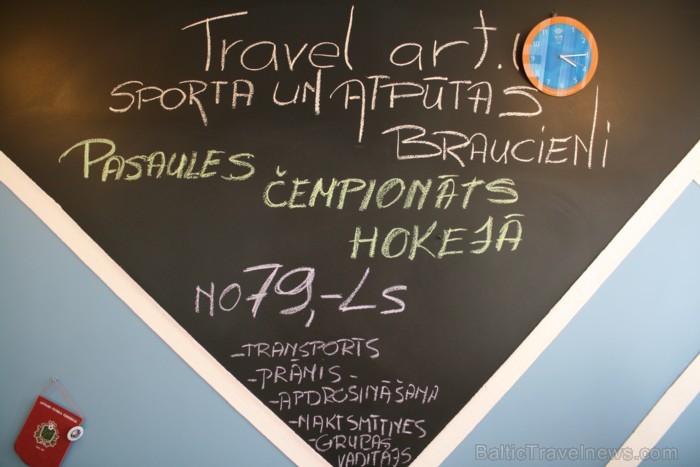 Travel art.
SPORTA UN ATPŪTAS
BRAUCIENI
PASAULES
ČEMPIONĀTS
HOKEJĀ
NO 79,-LS
-TRANSPORTS
-PRĀMIS-
-APDROŠINĀŠANA
-NAKTSMĪTNES
-GRUPAS
VADĪTĀJS
BalticTravelnews.com